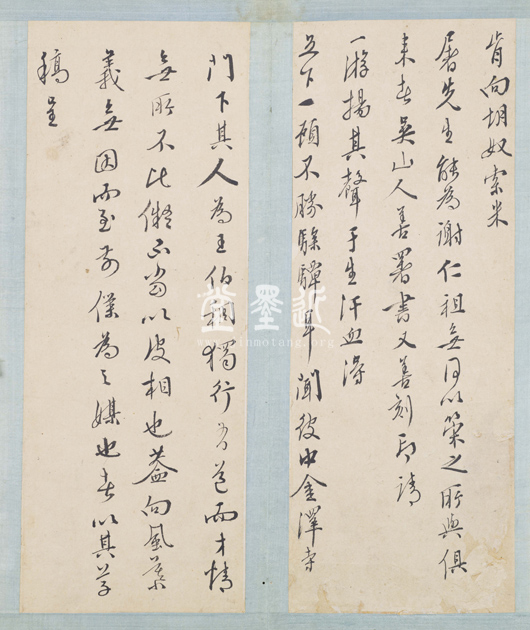 肯向胡奴索米
屠先生能為謝仁祖無同以策之所與俱
来者吴山人善署書又善刻印請
一游揚其聲于生汗血得
足下一顧不勝騄驒耳聞彼中金澤寺
門下其人為王伯穎獨行有道而才情
無所不比儗不當以皮相也蓋向風慕
義無因而至前僕為之媒也者以其草
稿呈